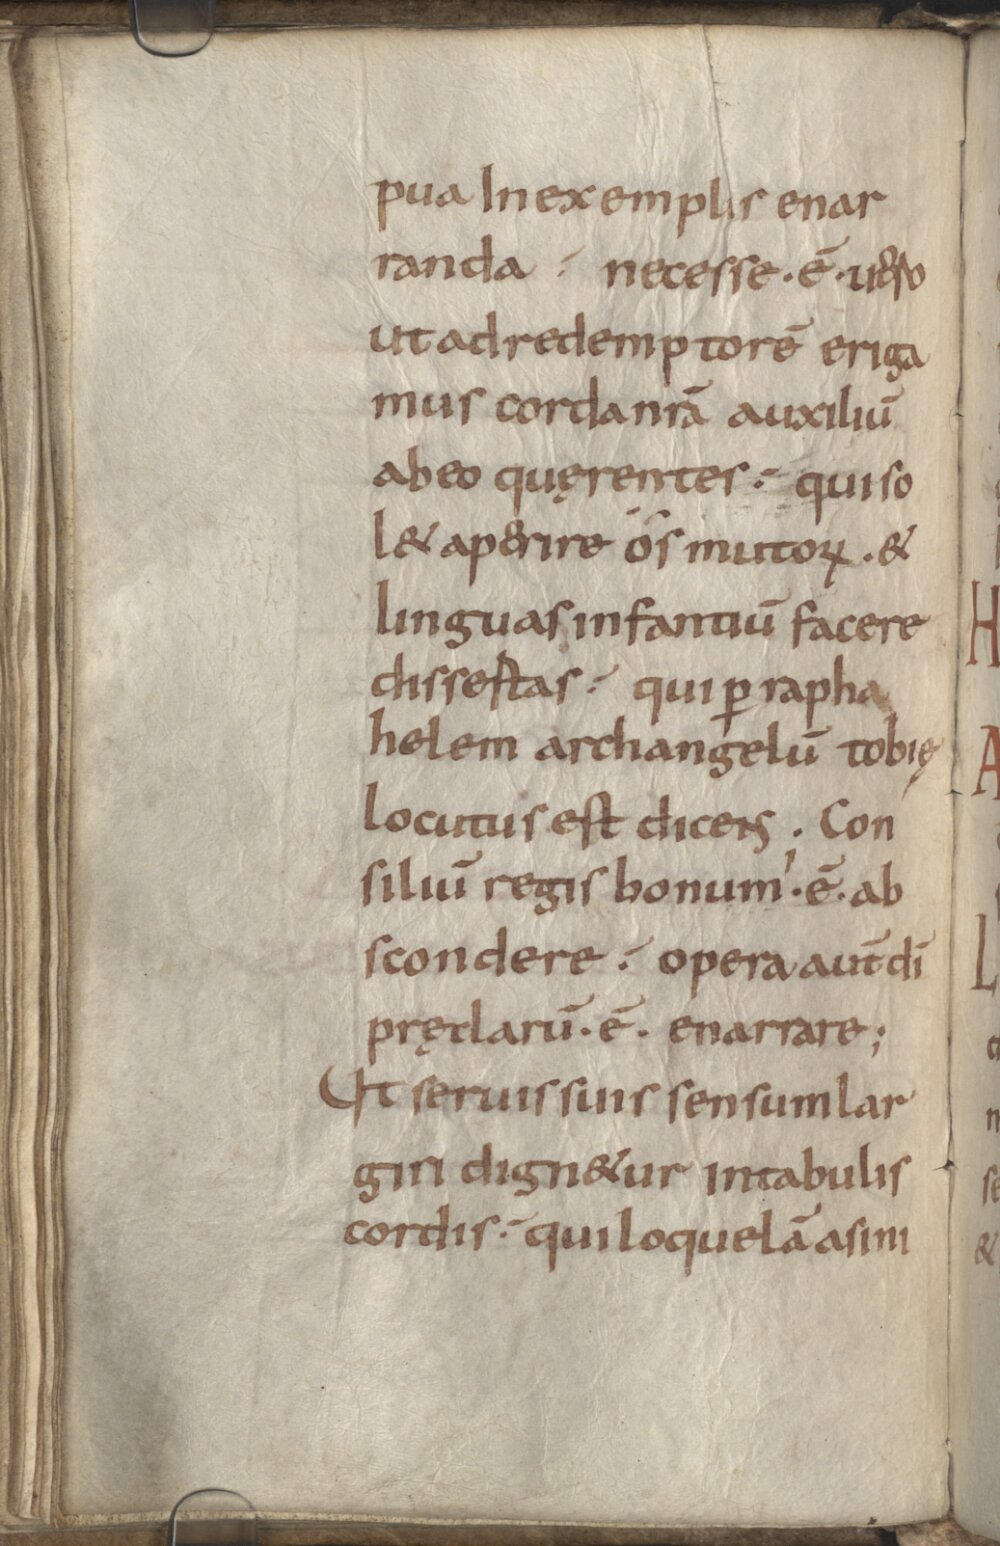 pua In exemplis enar
randa ⁖ necesse · ē ·
ut ad redemptorē eriga
mus corda nrā auxiliū
ab eo quęrentes ⁖ qui so
l& aperire os mutoꝝ . &
linguas infantiū facere
dissertas ⁖ qui ꝑ rapha
helem archangelū tobię
locutus est dicens . Con
siliū regis bonum · ē · ab
scondere ⁖ opera aut̄ dī
pręclarū · ē · enarrare ;
Ut seruis suis sensum lar
giri dign&ur in tabulis
cordis ⁖ qui loquelā asini
H
A
L
&